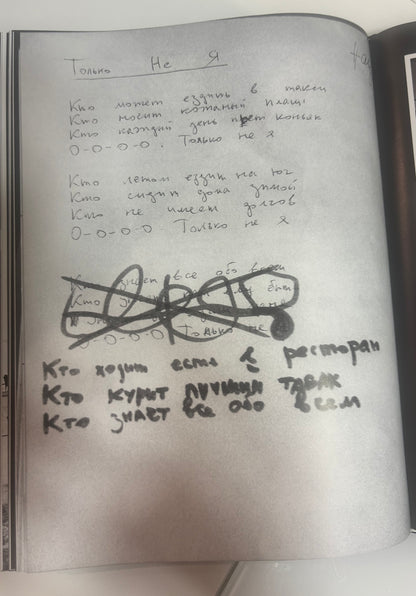 Только Не Я
Кто может ездить в такси
Кто носит кожаный плащ
Кто каждый день пьет коньяк
О-О-О-О. Только не я
Кто летом ездит на юг
Кто сидит дома зимой
Кто не имеет долгов
О-О-О-О Только не я
знает все обо всем
Кто
О-О-О-О Только не
Кто ходит есть в ресторан
Кто курит лучший табак
Кто знает все обо всем